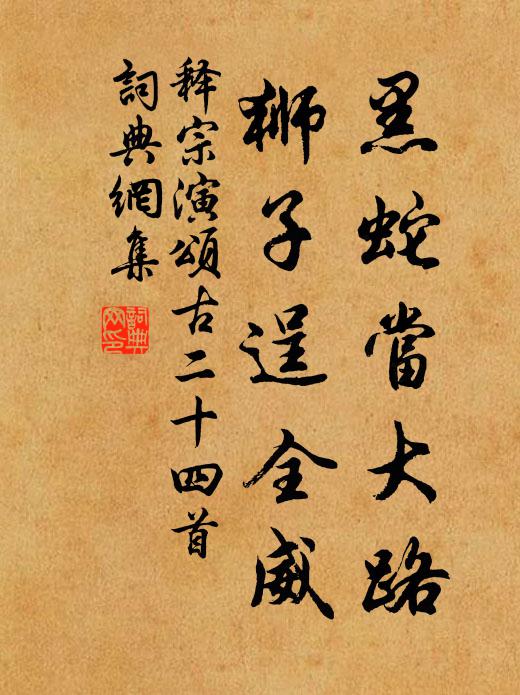 黑蛇當大路
獅子逞全威
释宗演頌古二十四首
詞典網集
詞典網印